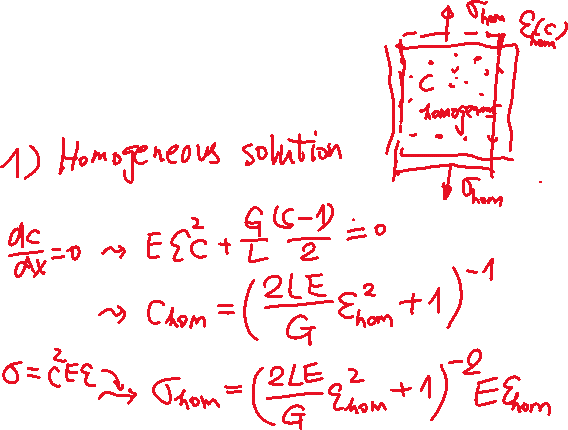 σhom
εhom(c)
C
homogen
σhom
1) Homogeneous solution
dc/dx = 0 ⤳ Eε²c + G/L (c-1)/2 = 0
⤳ Chom = (2LE/G ε²hom + 1)⁻¹
σ = c²Eε ⤳ σhom = (2LE/G ε²hom + 1)⁻² Eεhom